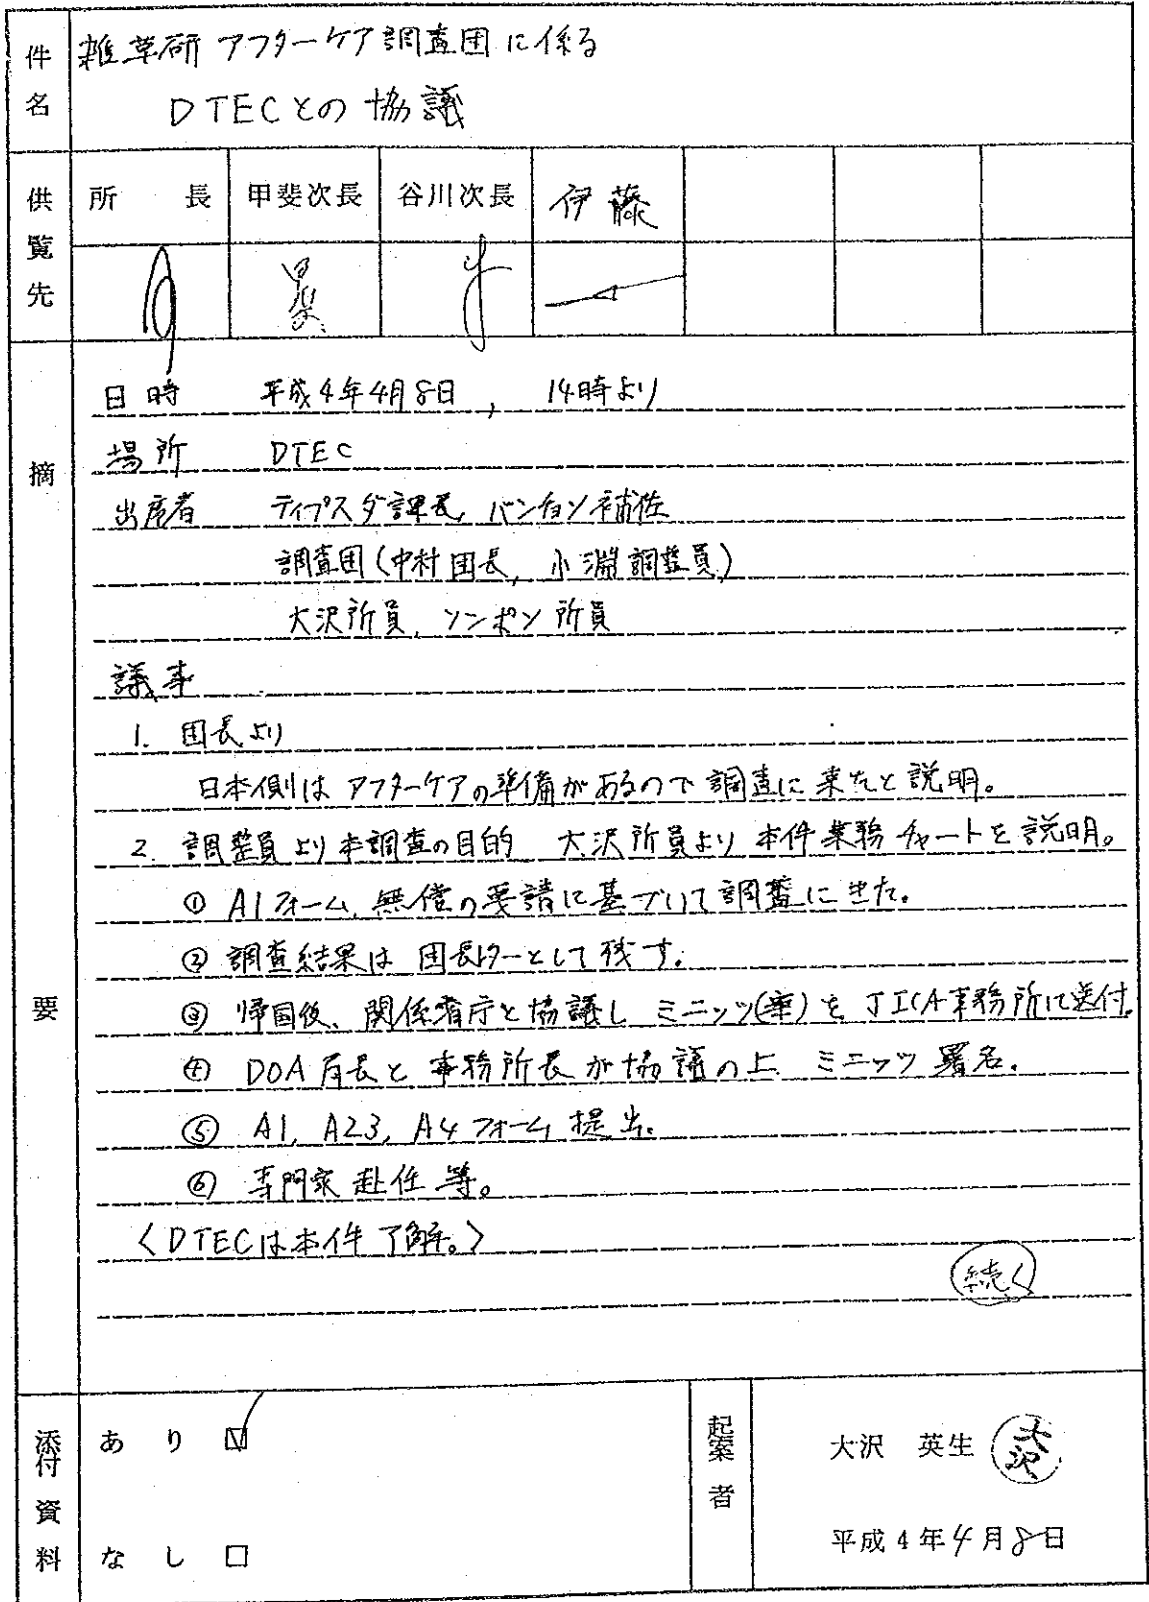 件名
雑草研 アフターケア調査団に係る
DTECとの協議
供覧先
所長 甲斐次長 谷川次長 伊藤
甲斐
摘要
日時 平成4年4月8日, 14時より
場所 DTEC
出席者 ティプスダ課長, バンチョン補佐
調査団(中村団長, 小淵調整員)
大沢所員, ソンポン所員
議事
1. 団長より
日本側はアフターケアの準備があるので調査に来たと説明。
2. 調整員より本調査の目的 大沢所員より本件業務チャートを説明。
① A1フォーム, 無償の要請に基づいて調査にきた。
② 調査結果は団長レターとして残す。
③ 帰国後、関係省庁と協議しミニッツ(案)をJICA事務所に送付。
④ DOA局長と事務所長が協議の上 ミニッツ署名。
⑤ A1, A23, A4フォーム提出。
⑥ 専門家赴任等。
〈DTECは本件了解。〉
続く
添付資料
あり ☑
なし □
起案者
大沢 英生 大沢
平成4年4月8日